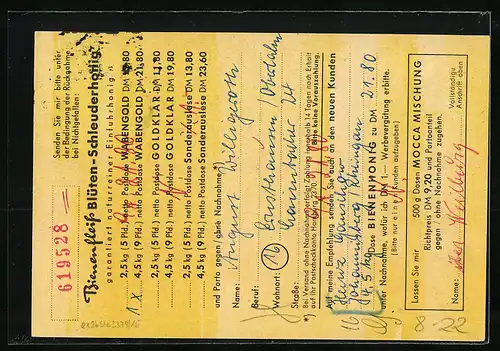 619528
Senden Sie mir bitte unter
der Bedingung der Rücknahme
bei Nichtgefallen:
Bienenfleiß Blüten-Schleuderhonig
garantiert naturreiner Einfuhrhonig
2,5 kg (5 Pfd.) netto Postdose WABENGOLD DM
4,5 kg (9 Pfd.) netto Postdose WABENGOLD DM 21,80
2,5 kg (5 Pfd.) netto Postdose GOLDKLAR DM 11,80
1 x 4,5 kg (9 Pfd.) netto Postdose GOLDKLAR DM 19,80
2,5 kg (5 Pfd.) netto Postdose Sonderauslese DM 13,80
4,5 kg (9 Pfd.) netto Postdose Sonderauslese DM 23,60
und Porto gegen (ohne Nachnahme)
Name: August
Beruf:
Wohnort: (16)
Straße: 24
Bei Versand ohne Nachnahme erfolgt Zahlung innerhalb 14 Tagen nach Erhalt
auf Ihr Postscheckkonto Hamburg 2370. (Bitte keine Vorauszahlung.)
Auf meine Empfehlung senden Sie auch an den neuen Kunden
Heinz
16 Johannisberg
4,5 kg Dose BIENENHONIG zu DM 21.80
unter Nachnahme, wofür ich DM 1.— Werbevergütung erbitte.
(Bitte nur einen Kunden aufgeben)
Lassen Sie mir 500 g Dosen MOCCA MISCHUNG
Richtpreis DM 9,20 und Portoanteil
gegen - ohne Nachnahme zugehen.
Vollständige
Anschrift oben
Name:
8-22